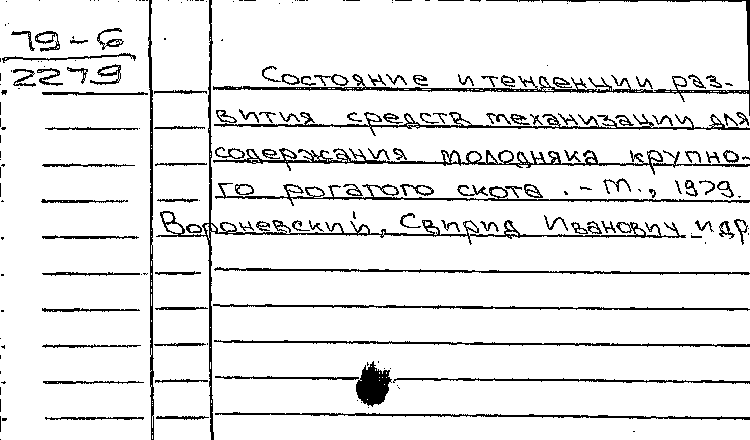 79-6
2279
Состояние и тенденции раз-
вития средств механизации для
содержания молодняка крупно-
го рогатого скота. - М., 1979.
Вороневский, Свирид Иванович и др